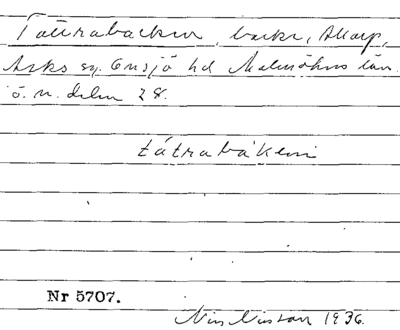 Tattrabacken, backe, Allarp,
Asks sn. Onsjö hd Malmöhus län.
ö. n. delen 28.
tátrabáken
Nr 5707.
Nils Nilsson 1936.